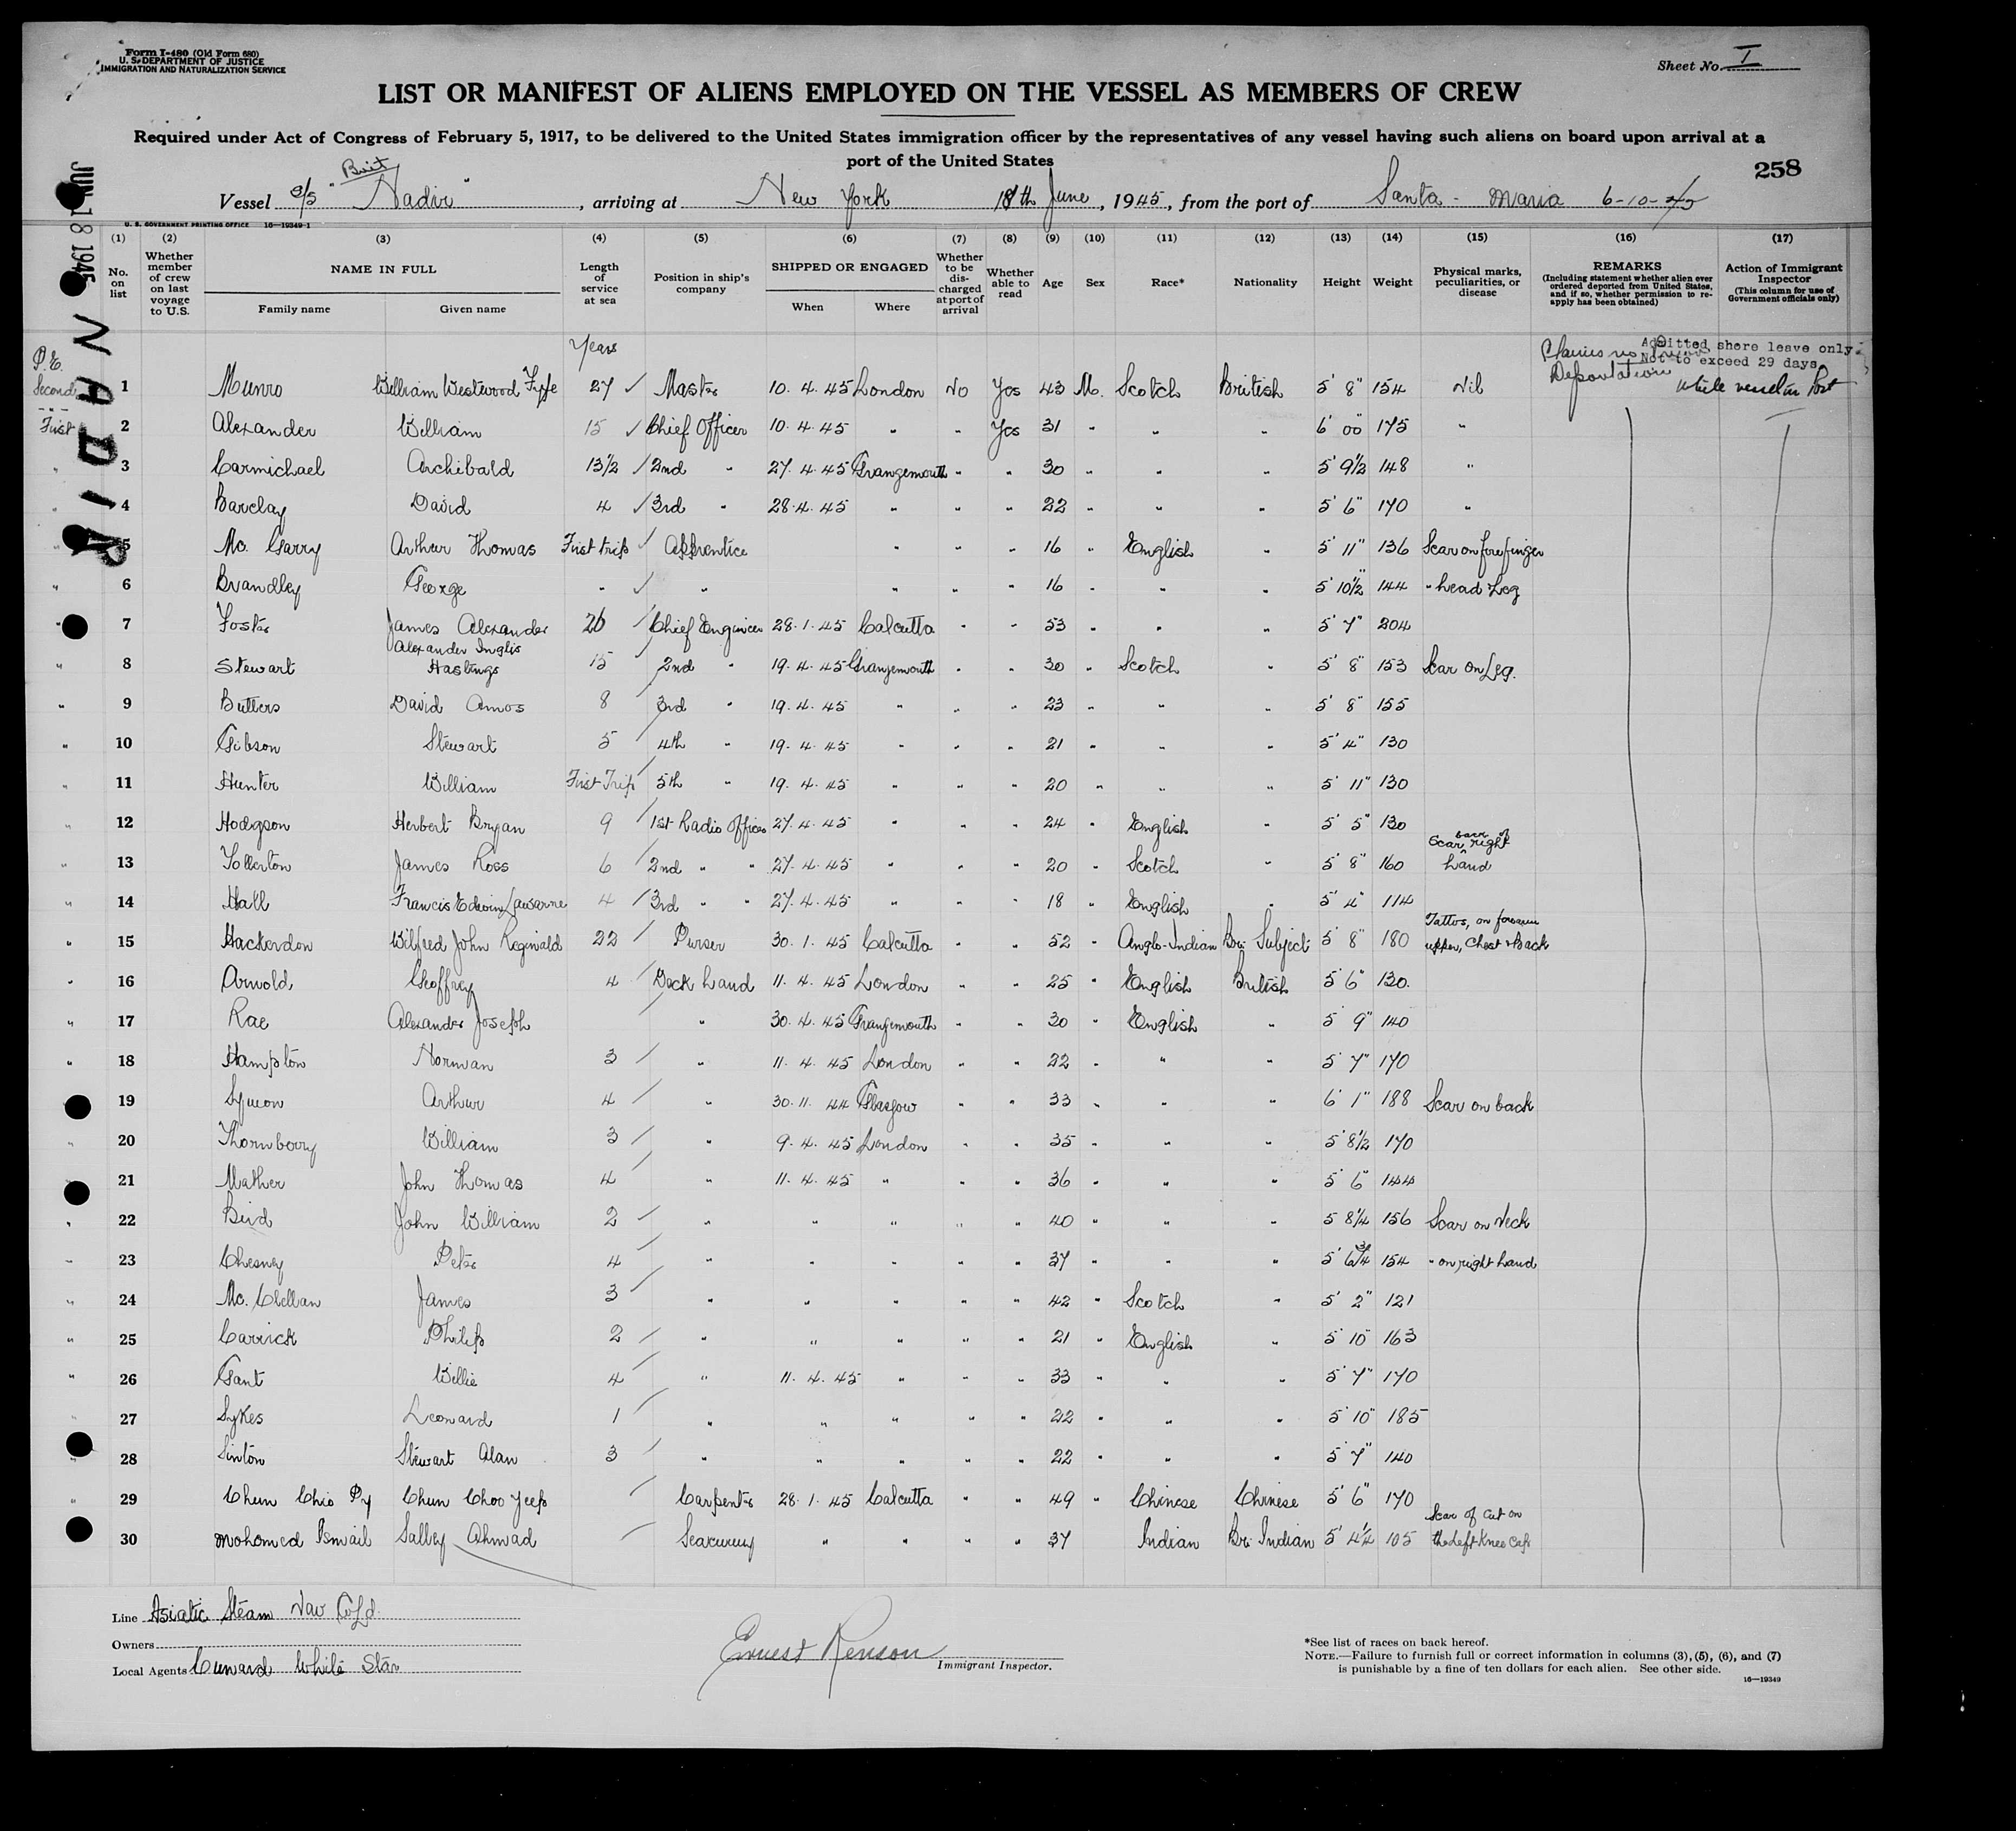 Form I-480 (Old Form 680)
U. S. DEPARTMENT OF JUSTICE
IMMIGRATION AND NATURALIZATION SERVICE
Sheet No. I
LIST OR MANIFEST OF ALIENS EMPLOYED ON THE VESSEL AS MEMBERS OF CREW
Required under Act of Congress of February 5, 1917, to be delivered to the United States immigration officer by the representatives of any vessel having such aliens on board upon arrival at a
port of the United States
258
JUN 18 1945
NADIR
Brit
Vessel s/s "Nadir", arriving at New York 18th June, 1945, from the port of Santa - Maria 6-10-45
U. S. GOVERNMENT PRINTING OFFICE 16-19349-1
(1) (2) (3) (4) (5) (6) (7) (8) (9) (10) (11) (12) (13) (14) (15) (16) (17)
No. on list
Whether member of crew on last voyage to U.S.
NAME IN FULL
Family name Given name
Length of service at sea
Position in ship's company
SHIPPED OR ENGAGED
When Where
Whether to be discharged at port of arrival
Whether able to read
Age Sex Race* Nationality Height Weight
Physical marks, peculiarities, or disease
REMARKS
(Including statement whether alien ever ordered deported from United States, and if so, whether permission to reapply has been obtained)
Action of Immigrant Inspector
(This column for use of Government officials only)
Years
P.E.
Claims no Deportation
Admitted shore leave only.
Not to exceed 29 days
while vessel in Port
Second 1 Munro William Westwood Fyfe 27 ✓ Master 10. 4. 45 London No Yes 43 M. Scotch British 5' 8" 154 Nil
First 2 Alexander William 15 ✓ Chief Officer 10. 4. 45 " " Yes 31 " " " 6' 00 175 "
" 3 Carmichael Archibald 13 1/2 ✓ 2nd " 27. 4. 45 Grangemouth " " 30 " " " 5' 9 1/2 148 "
" 4 Barclay David 4 ✓ 3rd " 28. 4. 45 " " " 22 " " " 5' 6" 170 "
" 5 Mc. Garry Arthur Thomas First trip ✓ Apprentice " " " 16 " English " 5' 11" 136 Scar on forefinger
" 6 Brandley George " ✓ " " " " 16 " " " 5' 10 1/2" 144 " head Leg
" 7 Foster James Alexander 26 Chief Engineer 28. 1. 45 Calcutta " " 53 " " " 5' 7" 204
" 8 Stewart Alexander Inglis Hastings 15 2nd " 19. 4. 45 Grangemouth " " 30 " Scotch " 5' 8" 153 Scar on Leg.
" 9 Butters David Amos 8 3rd " 19. 4. 45 " " " 23 " " " 5' 8" 155
" 10 Gibson Stewart 5 4th " 19. 4. 45 " " " 21 " " " 5' 4" 130
" 11 Hunter William First Trip 5th " 19. 4. 45 " " " 20 " " " 5' 11" 130
" 12 Hodgson Herbert Bryan 9 1st Radio Officer 27. 4. 45 " " " 24 " English " 5' 5" 130
" 13 Tollerton James Ross 6 2nd " " 27. 4. 45 " " " 20 " Scotch " 5' 8" 160 Scar back of right hand
" 14 Hall Francis Edwin 4 3rd " " 27. 4. 45 " " " 18 " English " 5' 4" 114
" 15 Hackerdon Wilfred John Reginald 22 Purser 30. 1. 45 Calcutta " " 52 " Anglo-Indian Bri. Subject 5' 8" 180 Tattos, on forearm upper, Chest & Back
" 16 Arnold Geoffrey 4 Deck hand 11. 4. 45 London " " 25 " English British 5' 6" 130.
" 17 Rae Alexander Joseph " 30. 4. 45 Grangemouth " " 30 " English " 5' 9" 140
" 18 Hampton Norman 3 " 11. 4. 45 London " " 22 " " " 5' 7" 170
19 Symon Arthur 4 " 30. 11. 44 Glasgow " " 33 " " " 6' 1" 188 Scar on back
" 20 Thornbory William 3 " 9. 4. 45 London " " 35 " " " 5' 8 1/2 170
21 Mather John Thomas 4 " 11. 4. 45 " " " 36 " " " 5' 6" 144
" 22 Bird John William 2 " " " " " 40 " " " 5 8 1/4 156 Scar on Neck
" 23 Chesney Peter 4 " " " " " 37 " " " 5' 6 3/4 154 " on right hand
" 24 Mc. Clellan James 3 " " " " " 42 " Scotch " 5' 2" 121
" 25 Carrick Philip 2 " " " " " 21 " English " 5' 10" 163
" 26 Gant Willie 4 " 11. 4. 45 " " " 33 " " " 5' 7" 170
" 27 Sykes Leonard 1 " " " " " 22 " " " 5' 10" 185
" 28 Sinton Stewart Alan 3 " " " " " 22 " " " 5' 7" 140
" 29 Chun Chio Py Chun Choo Yeep Carpenter 28. 1. 45 Calcutta " " 49 " Chinese Chinese 5' 6" 170
30 Mohomed Ismail Salley Ahmad Seacunny " " " " 37 Indian Bri. Indian 5' 4 1/4 105 Scar of cut on the left Knee Cap
Line Asiatic Steam Nav Co Ld.
Owners
Local Agents Cunard White Star
Ernest Renson
Immigrant Inspector.
*See list of races on back hereof.
NOTE.—Failure to furnish full or correct information in columns (3), (5), (6), and (7)
is punishable by a fine of ten dollars for each alien. See other side.
16—19349